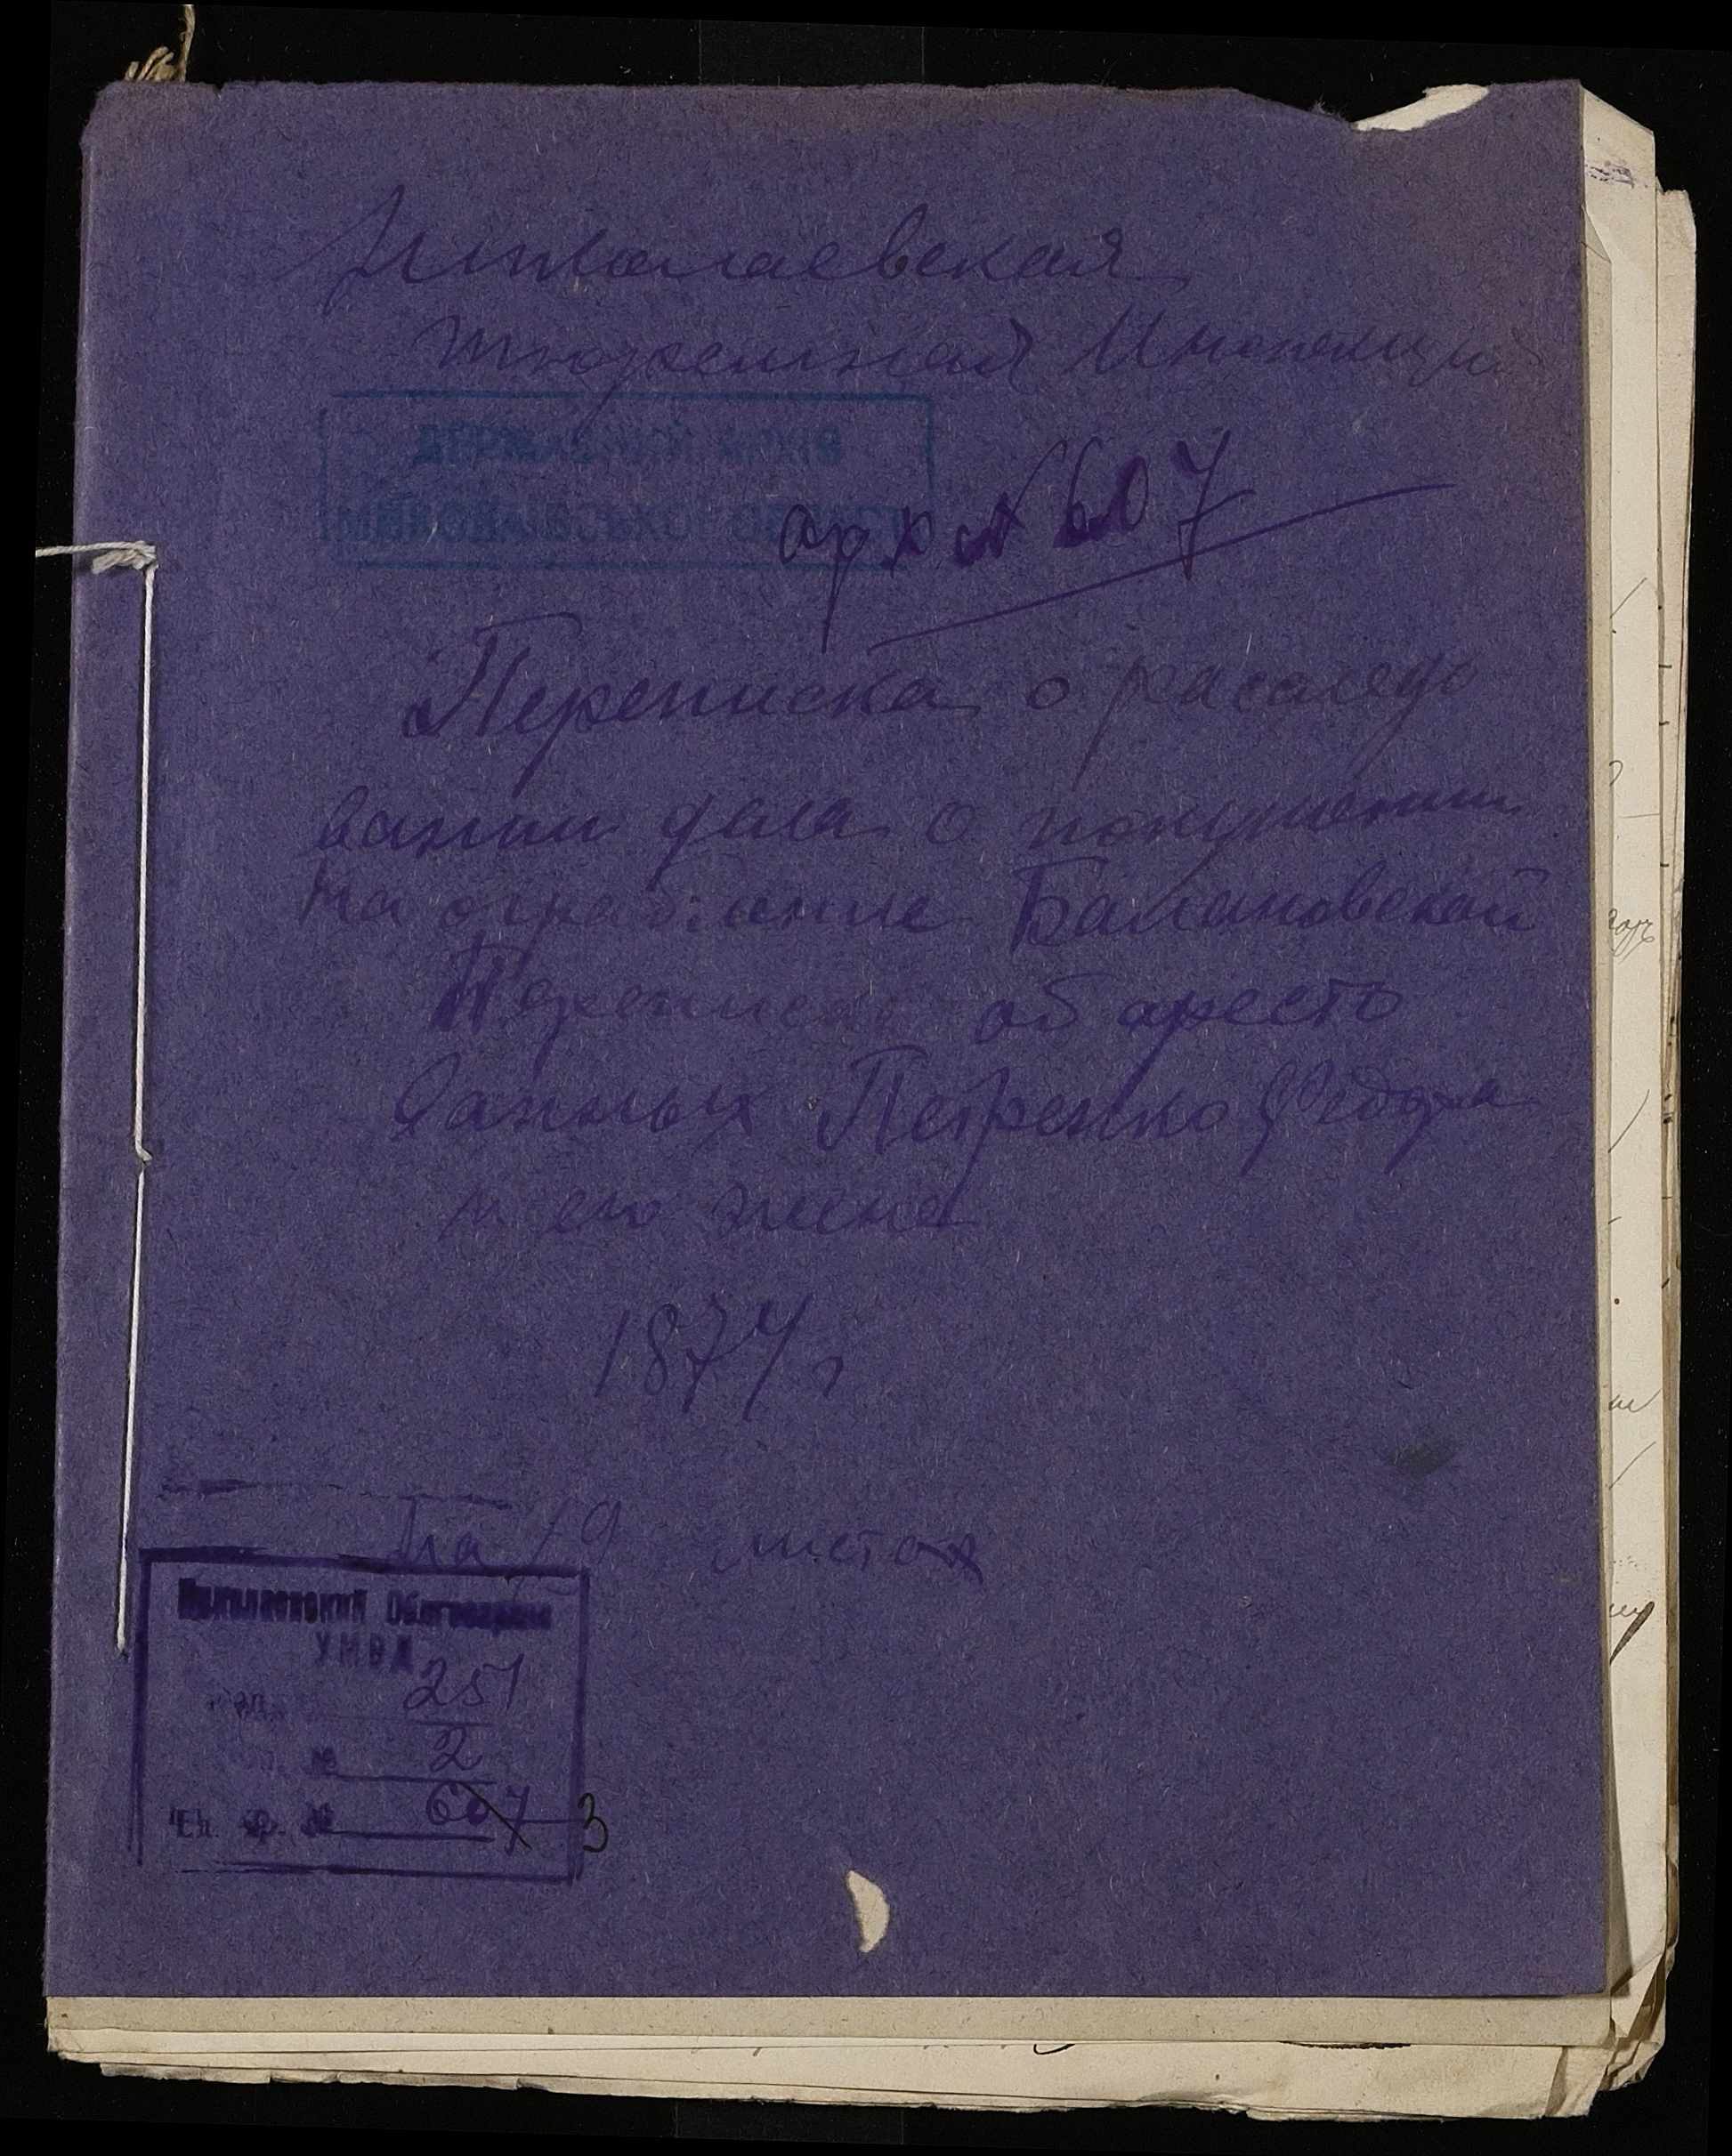 Николаевская
тюремная Инспекция
ДЕРЖАВНИЙ АРХІВ
МИКОЛАЇВСЬКОЇ ОБЛАСТІ
арх № 607
Переписка о расследо
вании дела о покушении
на ограбление Балановской
Переписка об аресто
ванных Петренко Федора
и его жена
1874 г
На 19 листах
Николаевский Облгосархив
УМВД
251
№ 2
Ед. хр. № 607 3